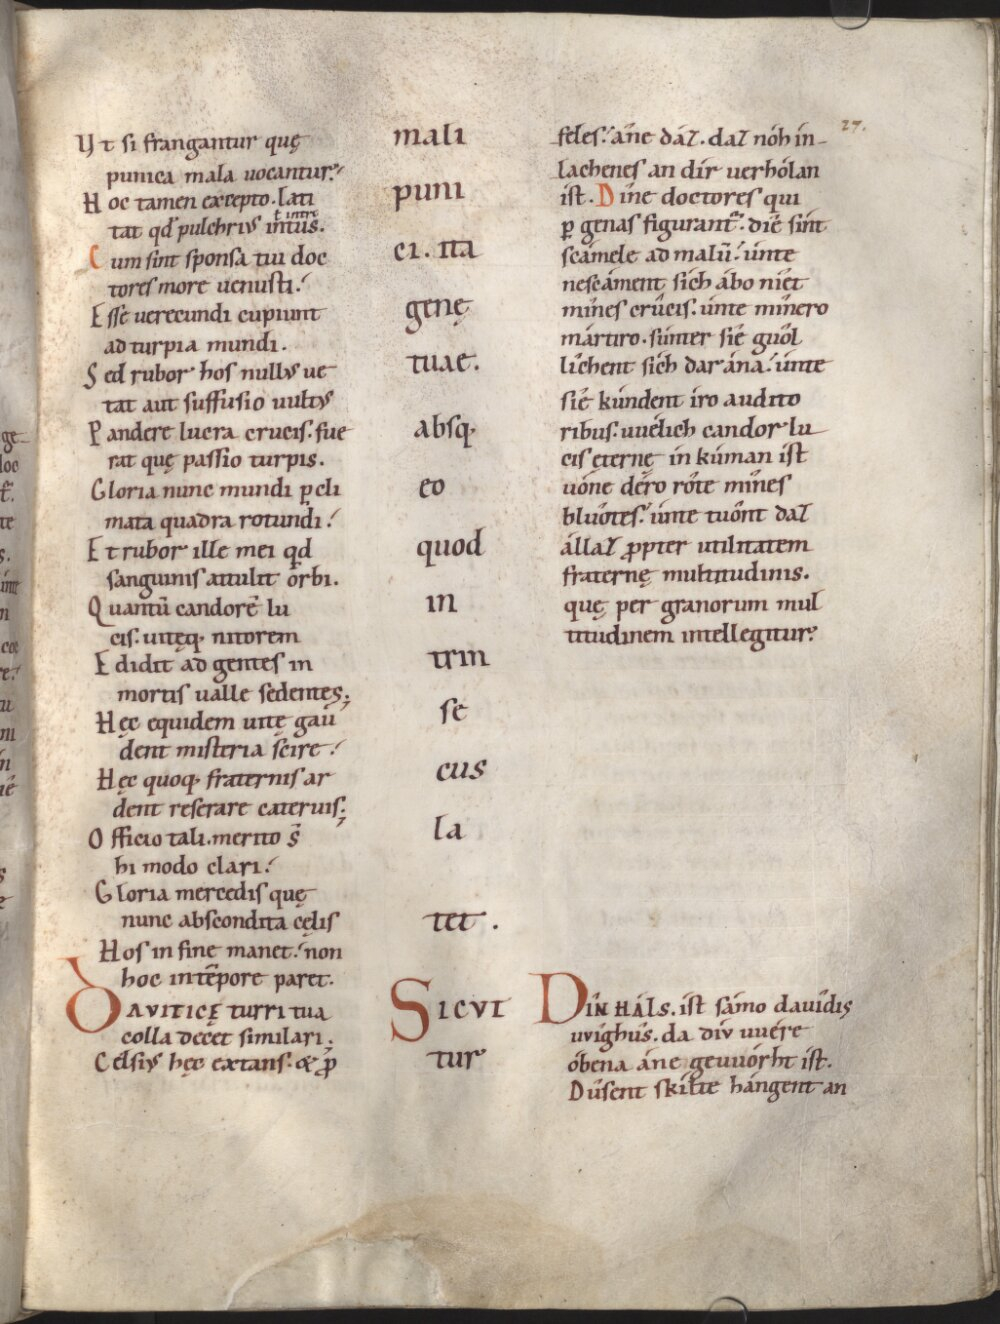 27.
Ut si frangantur quę
punica mala uocantur.
Hoc tamen excepto. lati
tat qđ pulchriꝰ intus.
ł intrȩ
Cum sint sponsa tui doc
tores more uenusti.
Esse uerecundi cupiunt
ad turpia mundi.
Sed rubor hos nullꝰ ue
tat aut suffusio uultꝰ
Pandere lucra crucis. fue
rat quę passio turpis.
Gloria nunc mundi ꝑ cli
mata quadra rotundi.
Et rubor ille mei qđ
sanguinis attulit orbi.
Quantū candorē lu
cis. uitęq; nitorem
Edidit ad gentes in
mortis ualle sedentes;
Hęc equidem uitę gau
dent misteria scire.
Hęc quoq; fraternis ar
dent reserare cateruis;
Officio tali. merito s̄
hi modo clari.
Gloria mercedis quę
nunc abscondita cęlis
Hos in fine manet. non
hoc in tēpore paret.
Dauiticę turri tua
colla decet similari.
Celsiꝰ hęc extans. & ꝓ
mali
puni
ci. ita
genę
tuae.
absq;
eo
quod
in
trin
se
cus
la
tet.
Sicut
tur
feles. áne dáz. daz nóh in-
lachenes an dír uerhólan
ist. Díne doctores qui
ꝑ genas figurant᷑. dié sint
scámele ad malū. únte
nescáment sích ábo niét
mínes crûcis. únte mínero
mártiro. súnter sié guôl
líchent sích dar ána. únte
sié kúndent íro audito
ribus. uuélich candor lu
cis eternę ín kúman ist
uóne déro rôte mínes
bluôtes. únte tuônt daz
állaz ꝓpter utilitatem
fraternę multitudinis.
quę per granorum mul
titudinem intellegitur.
Dîn háls. ist sámo dauîdis
uuîghûs. da dîv uuére
óbena áne geuuórht ist.
Dûsent skílte hángent an